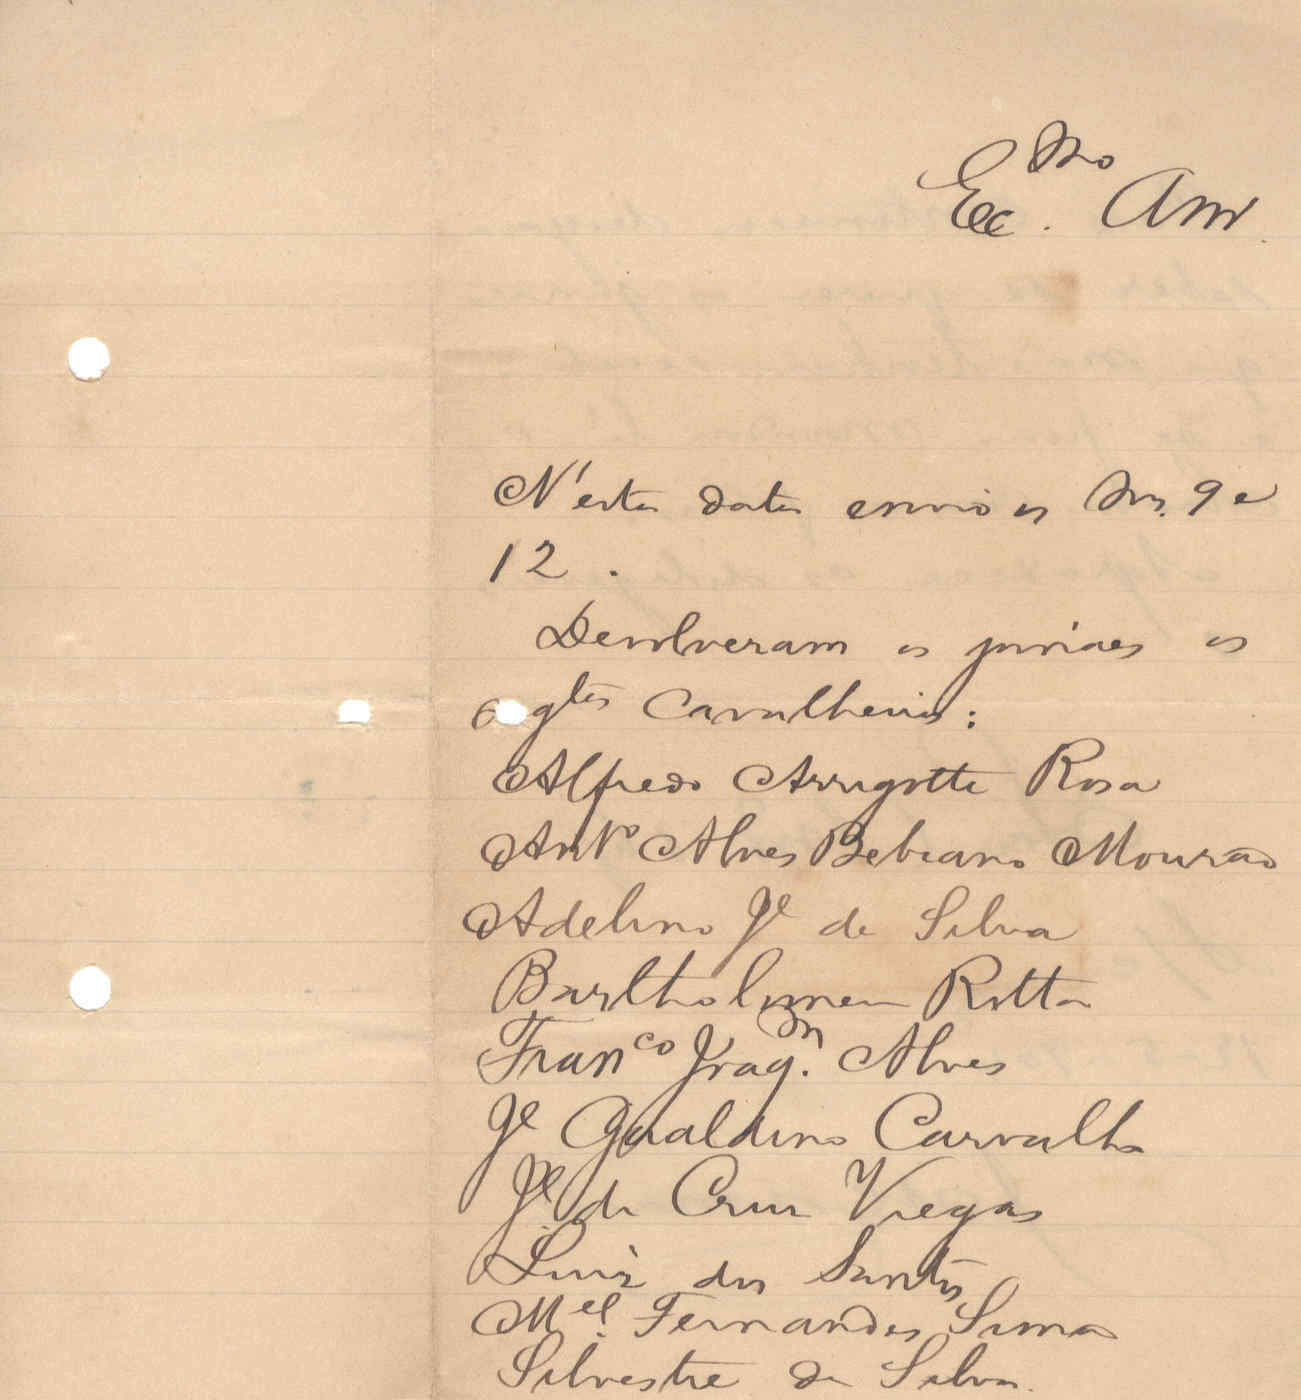 Exmo Am.
N'esta data envio os Nrs. 9 e
12.
Devolveram os jornaes os
sgtes Cavalheiros:
Alfredo Arrigotti Rosa
Anto Alves Bebiano Mourão
Adelino Je da Silva
Bartholomeu Rotta
Franco Joaqm. Alves
Je Gualdino Carvalho
Je. da Cruz Viegas
Luiz dos Santos
Mel. Fernandes Lima
Silvestre da Silva.